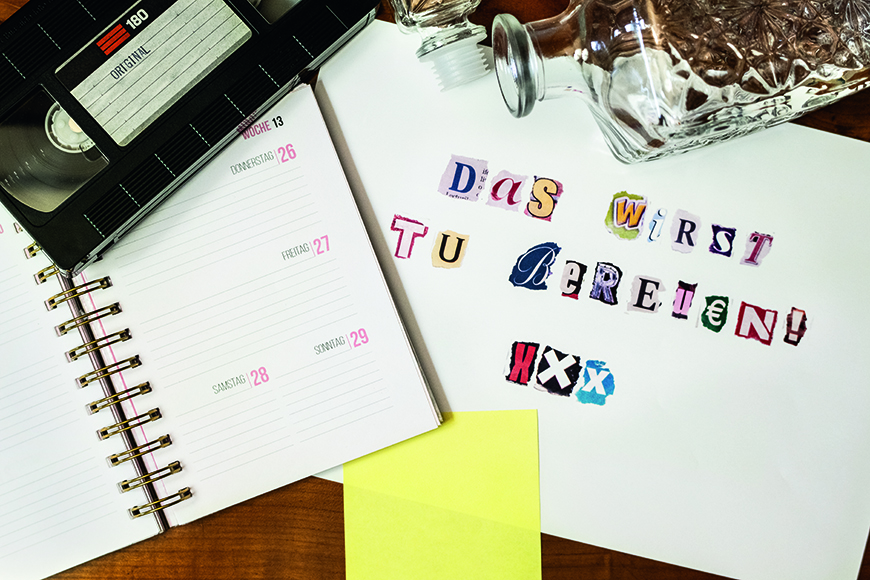 180
ORIGINAL
WOCHE 13
DONNERSTAG 26
FREITAG 27
SAMSTAG 28
SONNTAG 29
DAS WiRST
TU BeREuEN!
XXX